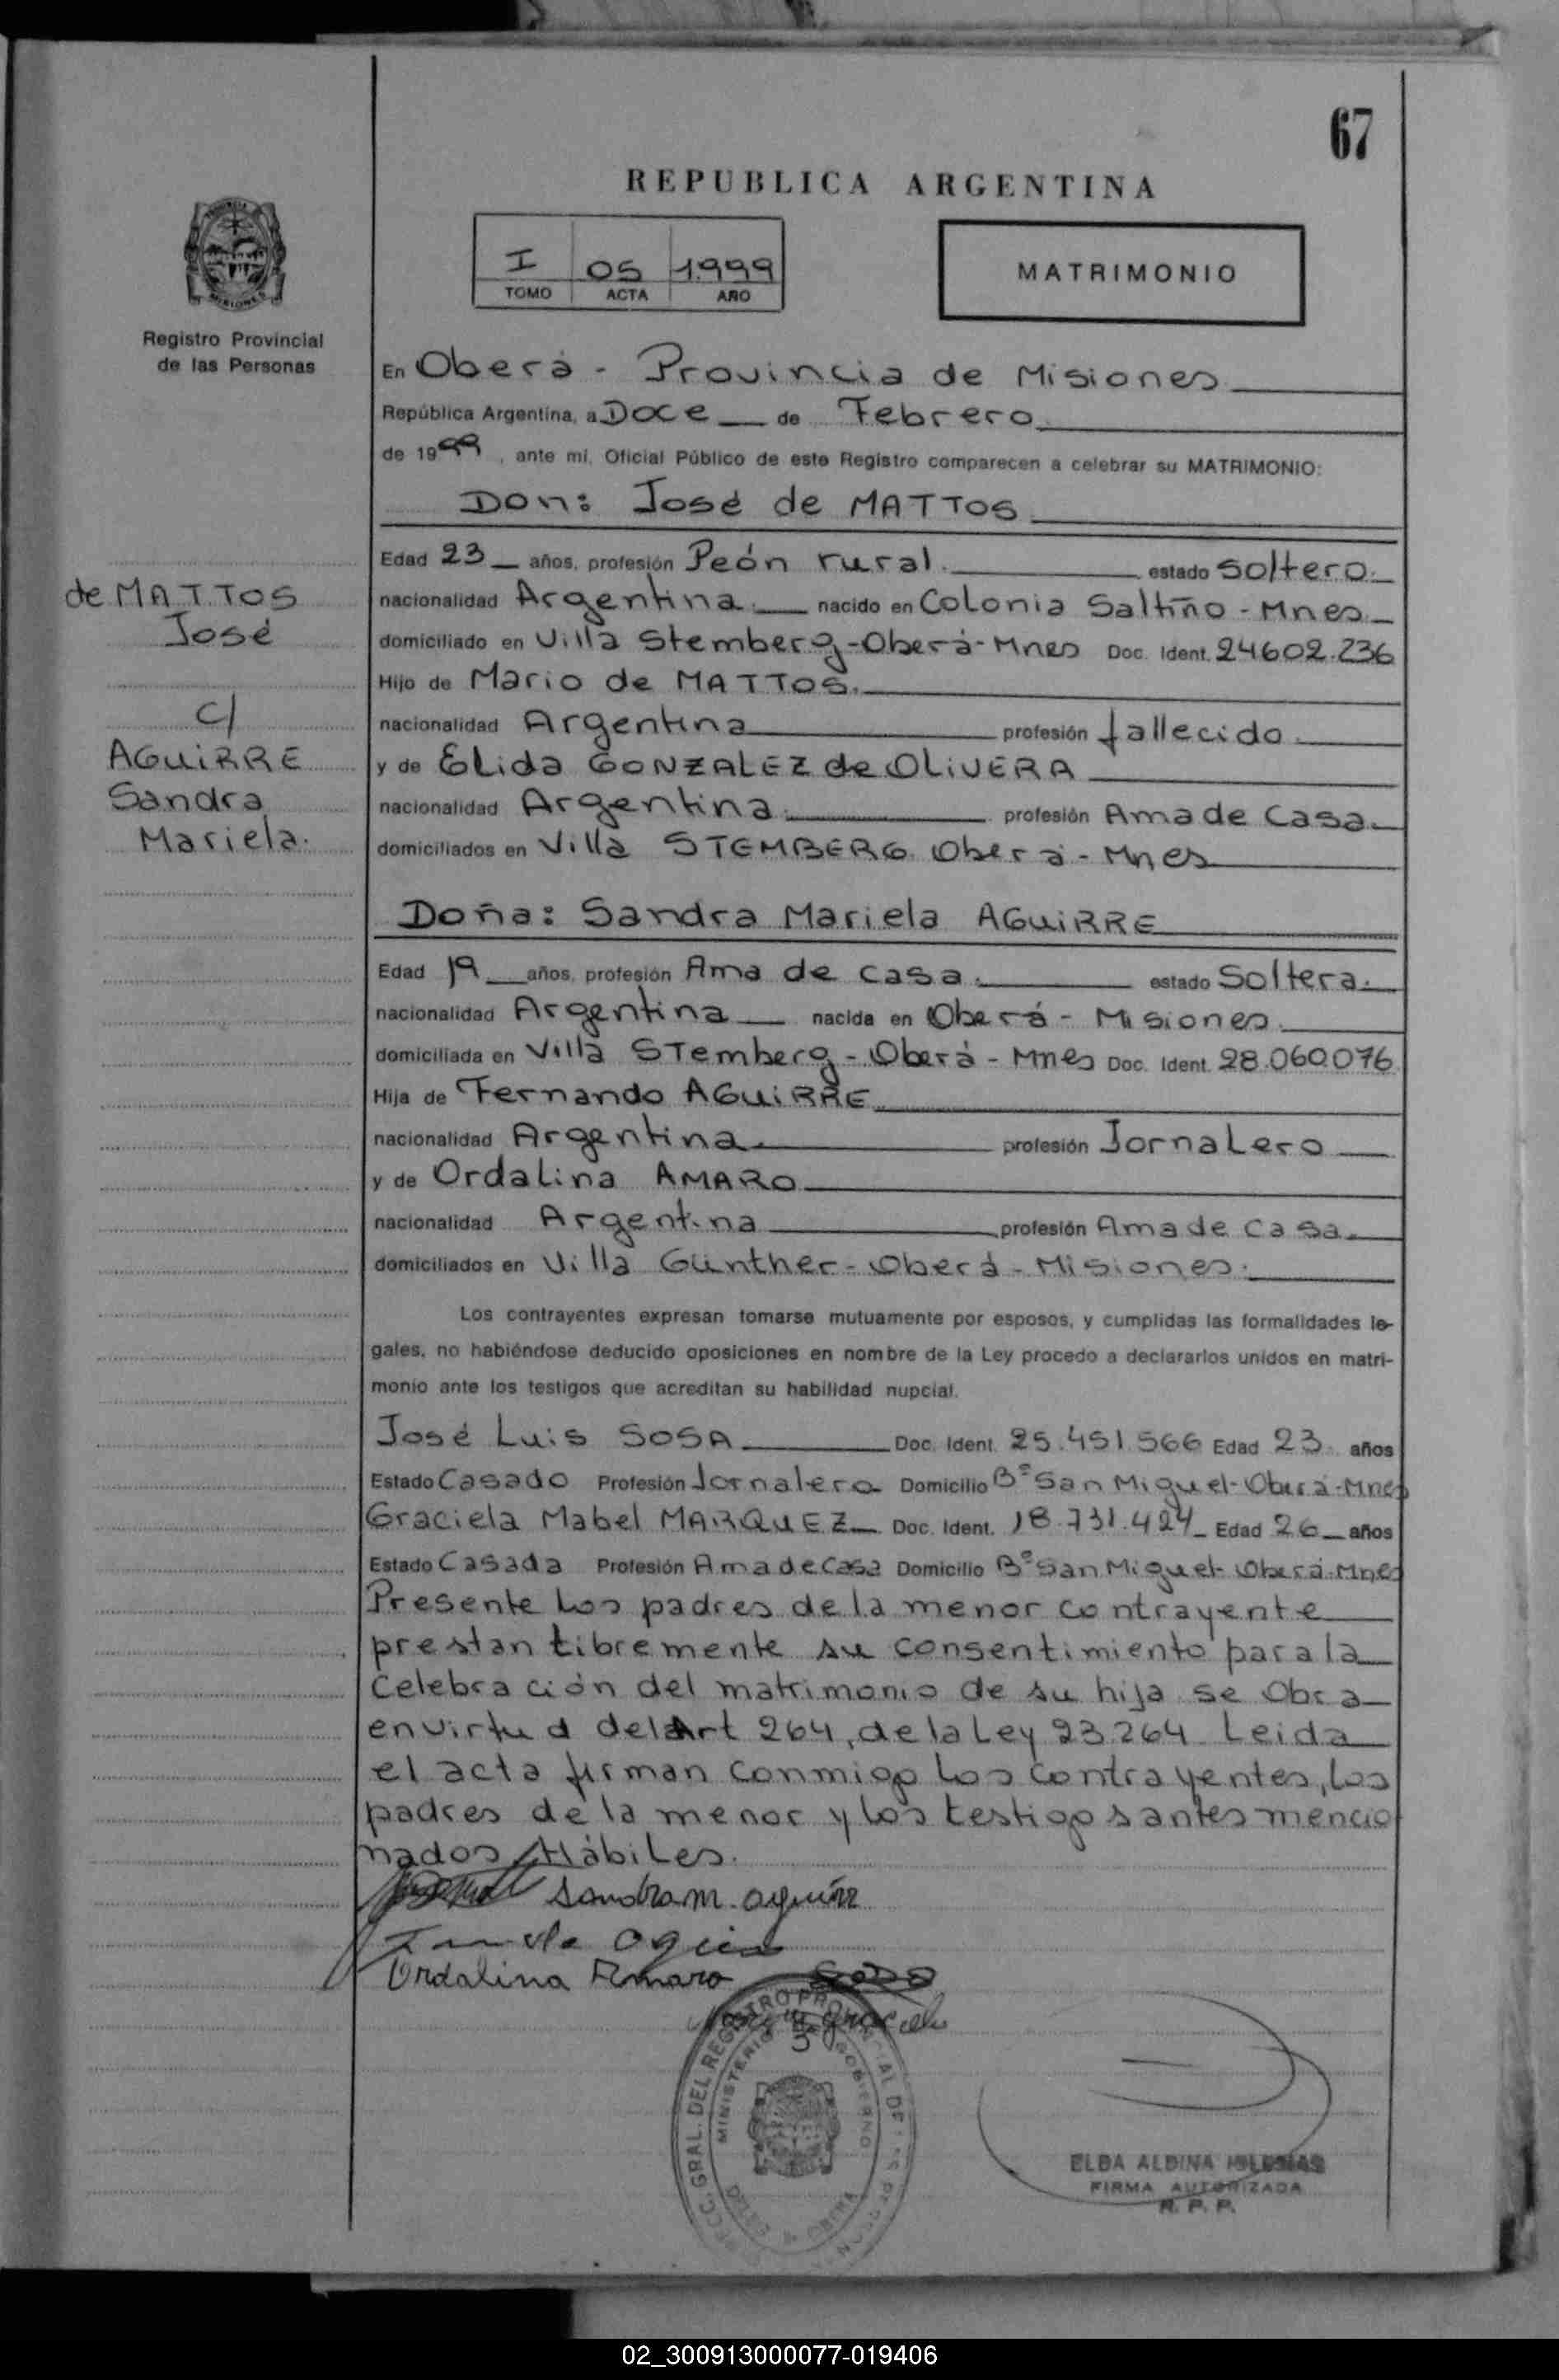 67
REPUBLICA ARGENTINA
I 05 1.999
TOMO ACTA AÑO
MATRIMONIO
Registro Provincial
de las Personas
En Oberá - Provincia de Misiones
República Argentina, a Doce de Febrero
de 1999, ante mí, Oficial Público de este Registro comparecen a celebrar su MATRIMONIO:
Don: José de MATTOS
Edad 23 años, profesión Peón rural. estado soltero.
nacionalidad Argentina. nacido en Colonia Saltiño - Mnes.
domiciliado en Villa Stemberg-Oberá-Mnes Doc. Ident. 24602.236
Hijo de Mario de MATTOS.
nacionalidad Argentina profesión fallecido.
y de Elida GONZALEZ de OLIVERA
nacionalidad Argentina. profesión Ama de Casa.
domiciliados en Villa STEMBERG. Oberá - Mnes
de MATTOS
José
c/
AGUiRRE
Sandra
Mariela.
Doña: Sandra Mariela AGUiRRE
Edad 19 años, profesión Ama de casa. estado Soltera.
nacionalidad Argentina nacida en Oberá - Misiones.
domiciliada en Villa STemberg - Oberá - Mnes Doc. Ident. 28.060.076
Hija de Fernando AGUiRRE
nacionalidad Argentina. profesión Jornalero
y de Ordalina AMARO
nacionalidad Argentina profesión Ama de casa.
domiciliados en Villa Günther - Oberá - Misiones.
Los contrayentes expresan tomarse mutuamente por esposos, y cumplidas las formalidades le-
gales, no habiéndose deducido oposiciones en nombre de la Ley procedo a declararlos unidos en matri-
monio ante los testigos que acreditan su habilidad nupcial.
José Luis SOSA Doc. Ident. 25.451.566 Edad 23 años
Estado Casado Profesión Jornalero Domicilio B° San Miguel-Oberá-Mnes
Graciela Mabel MARQUEZ Doc. Ident. 18.731.424 Edad 26 años
Estado Casada Profesión Ama de Casa Domicilio B° San Miguel-Oberá-Mnes
Presente los padres de la menor contrayente
prestan libremente su consentimiento para la
celebración del matrimonio de su hija se Obra
en virtud del Art 264, de la Ley 23.264. Leida
el acta firman conmigo los contrayentes, los
padres de la menor y los testigos antes mencio
nados Hábiles.
Sandra M. Aguirre
Ordalina Amaro
DIRECC. GRAL. DEL REGISTRO PROVINCIAL DE LAS PERSONAS
MINISTERIO DE GOBIERNO
OBERA
ELBA ALBINA IGLESIAS
FIRMA AUTORIZADA
R. P. P.
02_300913000077-019406